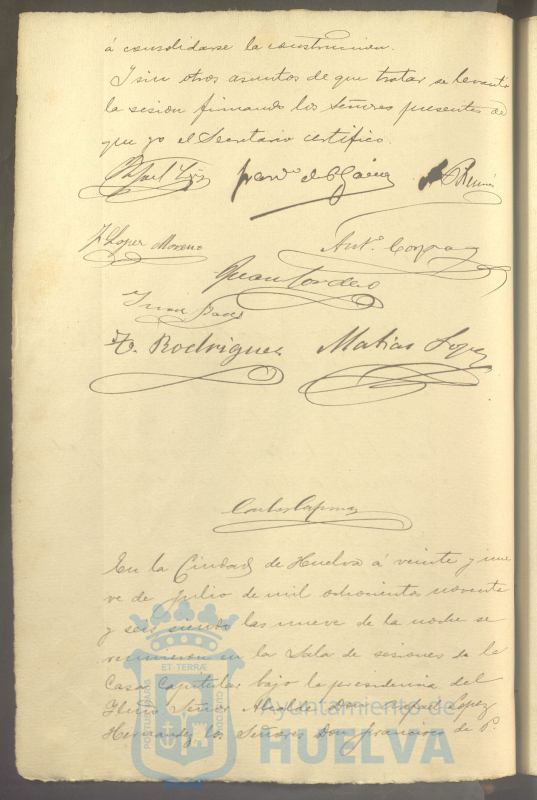 á consolidarse la construccion.
Y sin otros asuntos de que tratar se levantó
la sesion firmando los Señores presentes de
que yo el Secretario certifico.
Rafael
J. Lopez Moreno
Ant.º
Juan Cordero
Juan
F. Rodriguez Matias Lopez
En la Ciudad de Huelva á veinte y nue
ve de Julio de mil ochocientos noventa
y seis siendo las nueve de la noche se
reunieron en la Sala de sesiones de la
Casa Capitular bajo la presidencia del
Iltmo Señor Alcalde Don Rafael Lopez
Hernandez los Señores Don Francisco de P.
ET TERRÆ
PORTUS MARIS
CUSTODIA
Ayuntamiento de
HUELVA